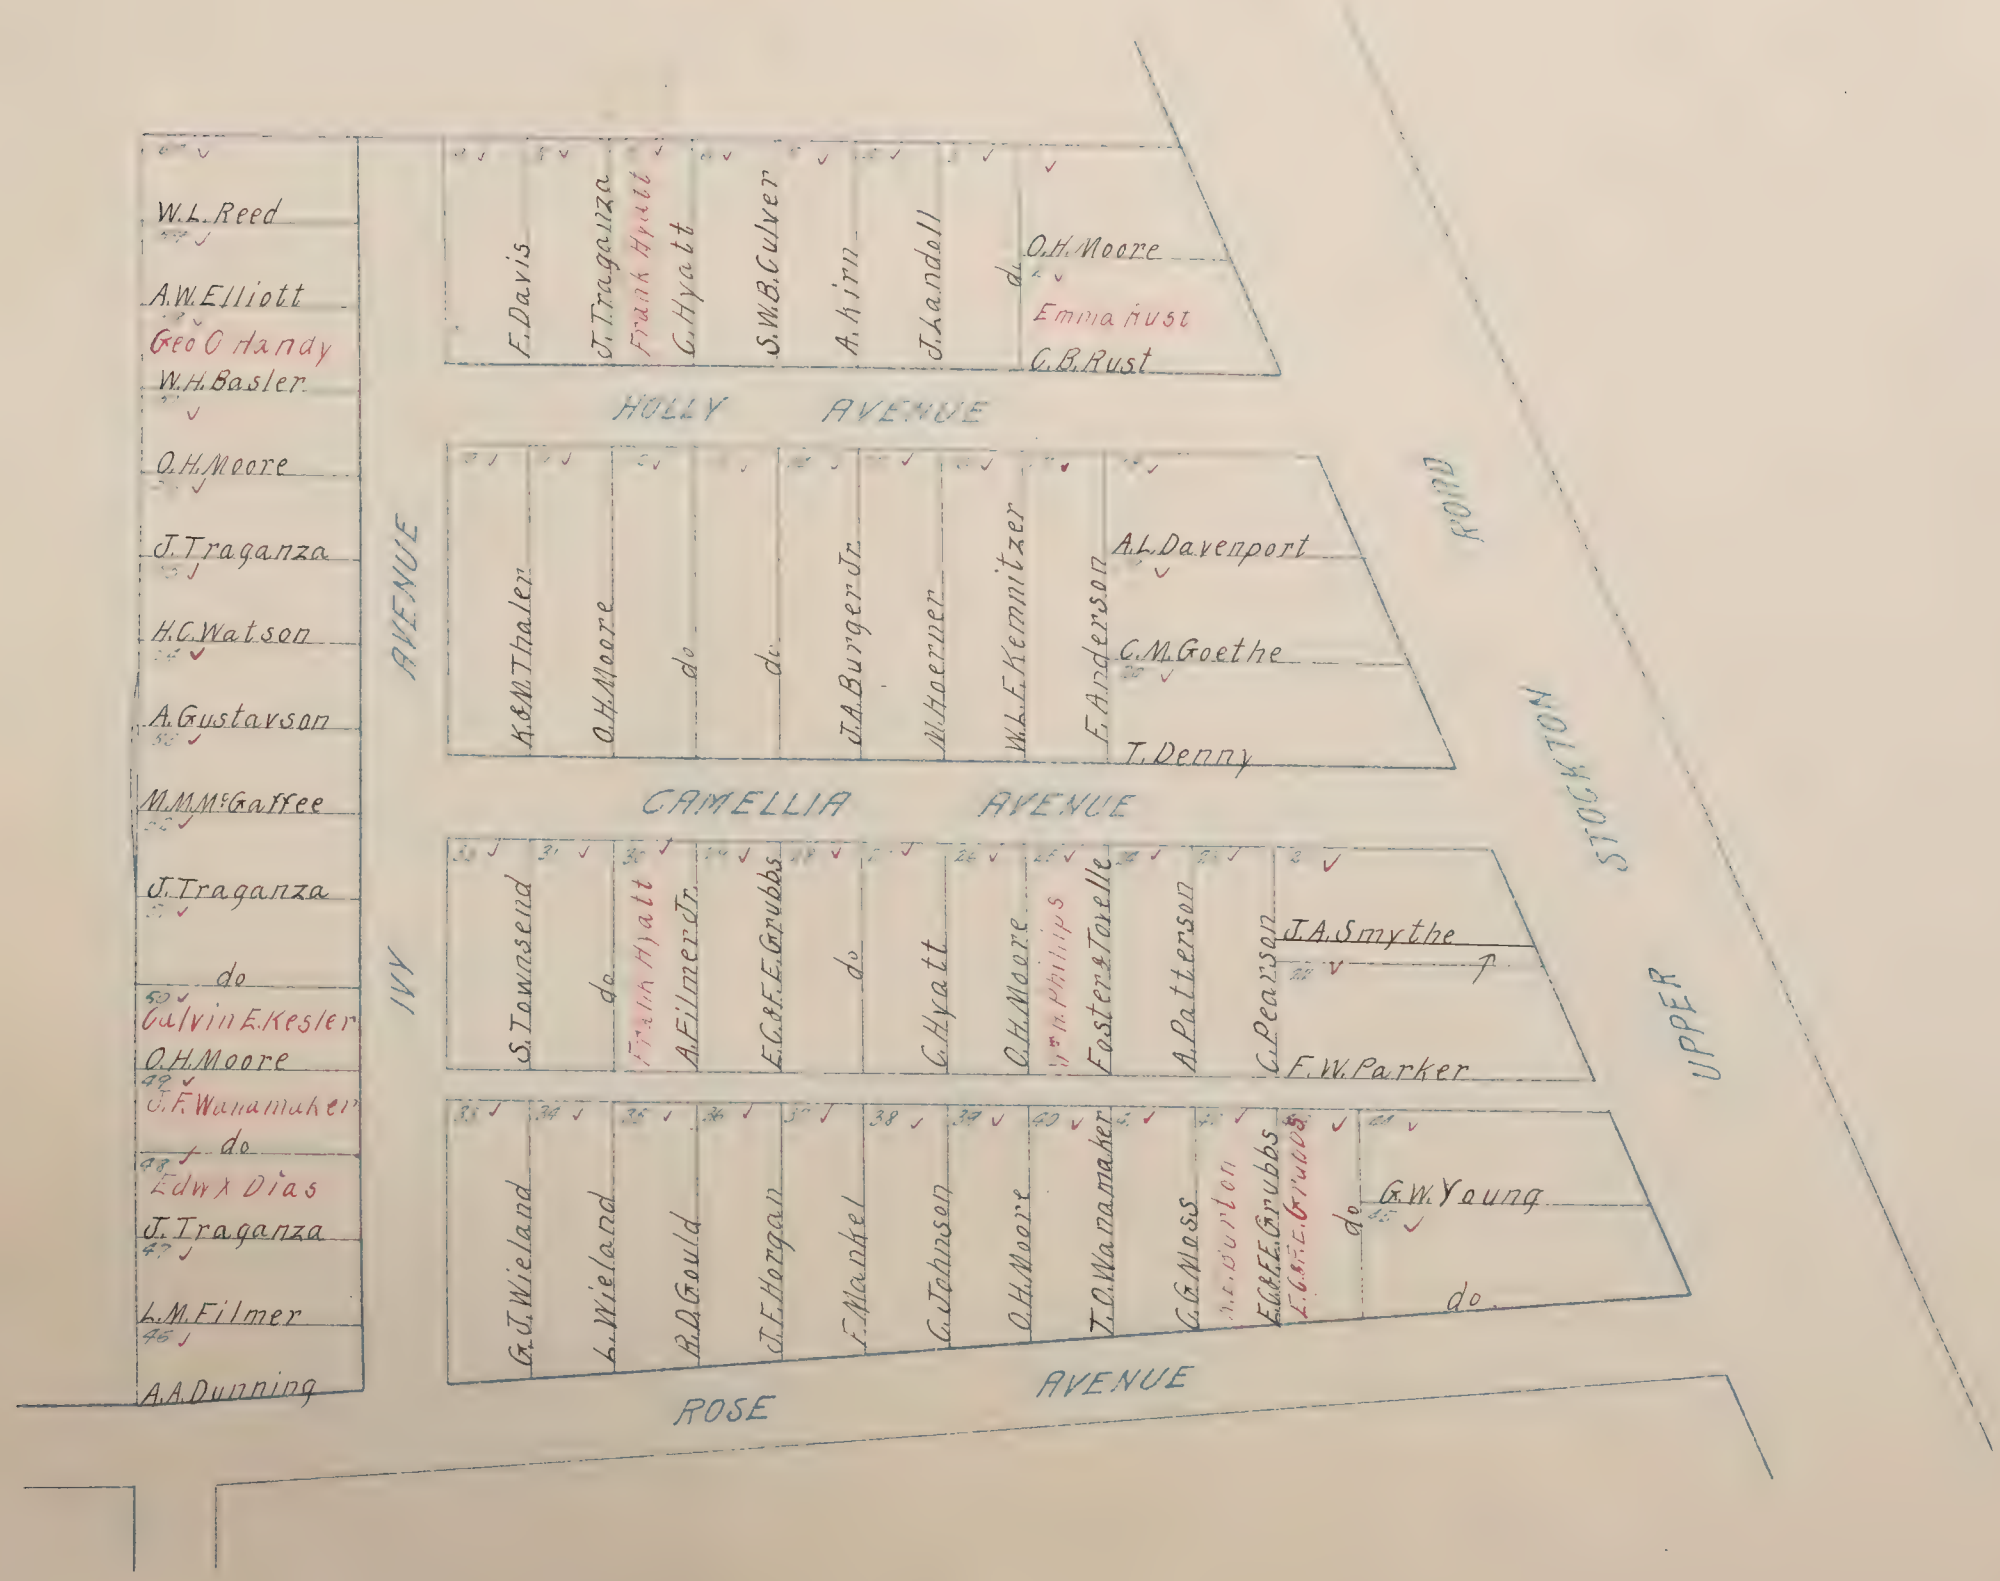 W.L. Reed
A.W. Elliott
Geo C Handy
W.H. Basler
O.H. Moore
J. Traganza
H.C. Watson
A. Gustavson
M.M. McGaffee
J. Traganza
do
50
Calvin E. Kesler
O.H. Moore
49
J.F. Wanamaker
do
48
J. Traganza
47
L.M. Filmer
46
A.A. Dunning
IVY AVENUE
F. Davis
J. Traganza
Frank Hyatt
C. Hyatt
S.W.B. Culver
A. Kirn
J. Landell
O.H. Moore
Emma Rust
C.B. Rust
HOLLY AVENUE
K.&M. Thaler
O.H. Moore
do
do
J.A. Burger Jr.
M. Hoerner
W.L.F. Kemnitzer
F. Anderson
A.L. Davenport
C.M. Goethe
T. Denny
CAMELLIA AVENUE
31
30
26
S. Townsend
do
Frank Hyatt
A. Filmer Jr.
E.C.&F.E. Grubbs
do
C. Hyatt
O.H. Moore
Wm. Philips
Foster & Tovelle
A. Patterson
C. Pearson
J.A. Smythe
F.W. Parker
33
34
35
36
37
38
39
40
G.J. Wieland
L. Wieland
R.D. Gould
J.F. Horgan
F. Mankel
C. Johnson
O.H. Moore
T.O. Wanamaker
C.G. Moss
E.C.&F.E. Grubbs
E.C.&F.E. Grubbs
do
44
G.W. Young
45
do
ROSE AVENUE
UPPER STOCKTON ROAD